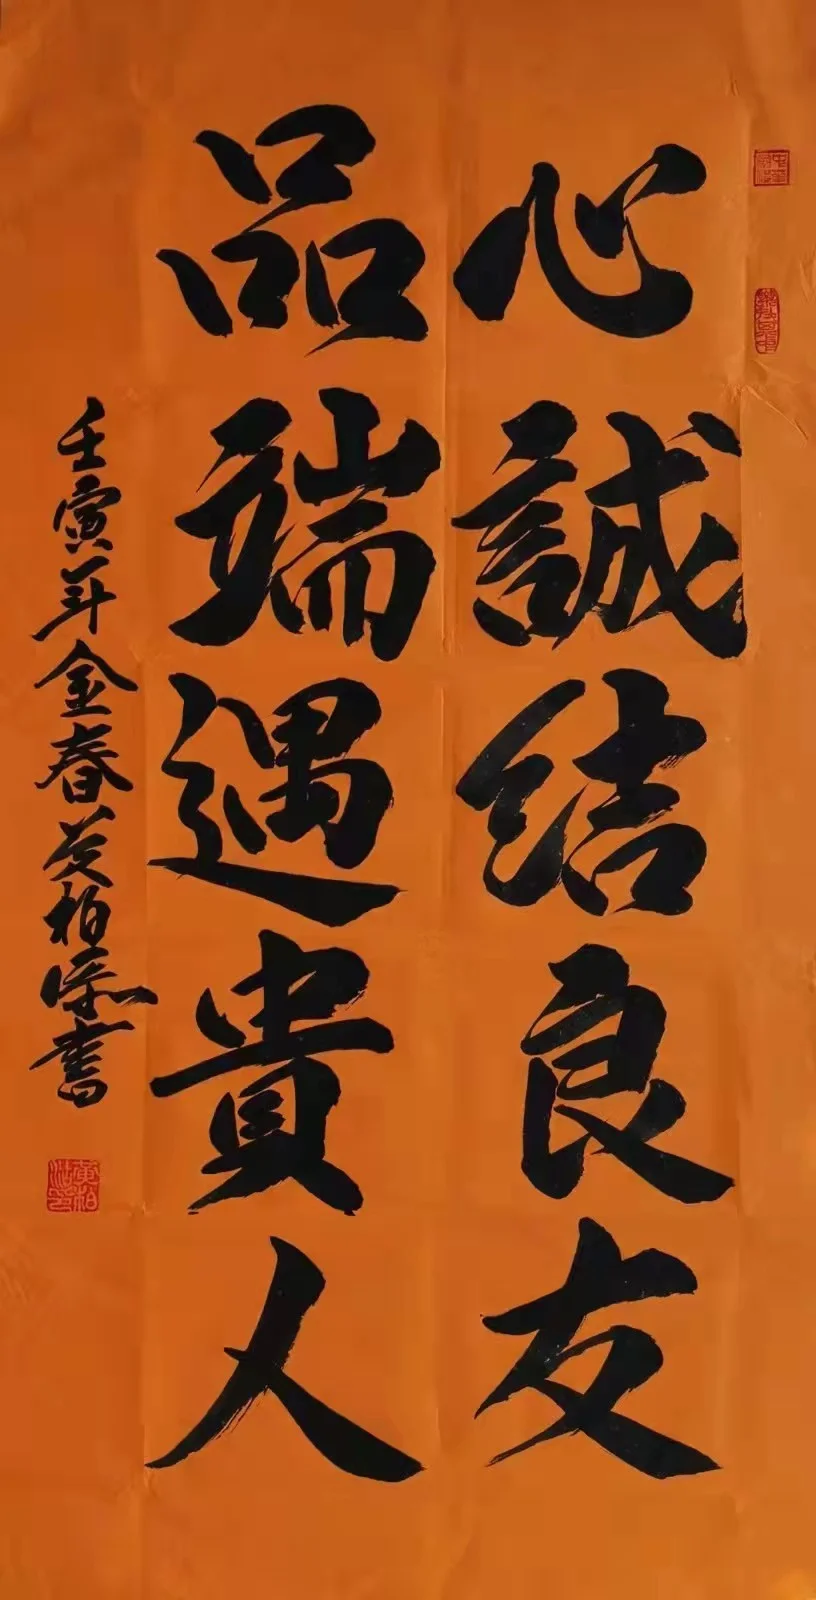 心誠結良友
品端遇貴人
壬寅年金春黄柏添書